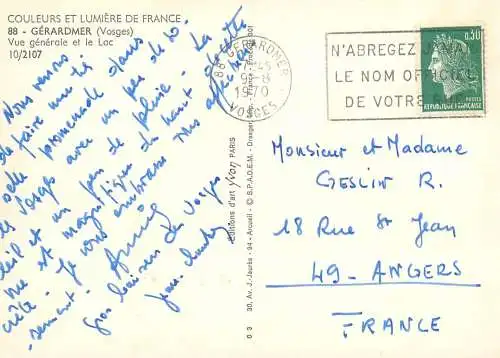 COULEURS ET LUMIÈRE DE FRANCE
88 - GÉRARDMER (Vosges)
Vue générale et le Lac
10/2107
Nous venons
de faire une
belle promenade dans
les Vosges avec un peu de so-
leil et un peu de pluie. La
vue est magnifique du haut des
crêtes. Je vous embrasse très affectueu-
sement. Annie
Gros baisers des Vosges
Jean-Charles
Editions d'art yvon PARIS
30, Av. J.-Jaurès - 94 - Arcueil - © S.P.A.D.E.M.
88 GÉRARDMER
9-8
1970
VOSGES
N'ABREGEZ JAMAIS
LE NOM OFFICIEL
DE VOTRE
0,30
POSTES
REPUBLIQUE FRANÇAISE
Monsieur et Madame
GESLIN R.
18 Rue St Jean
49 - ANGERS
FRANCE